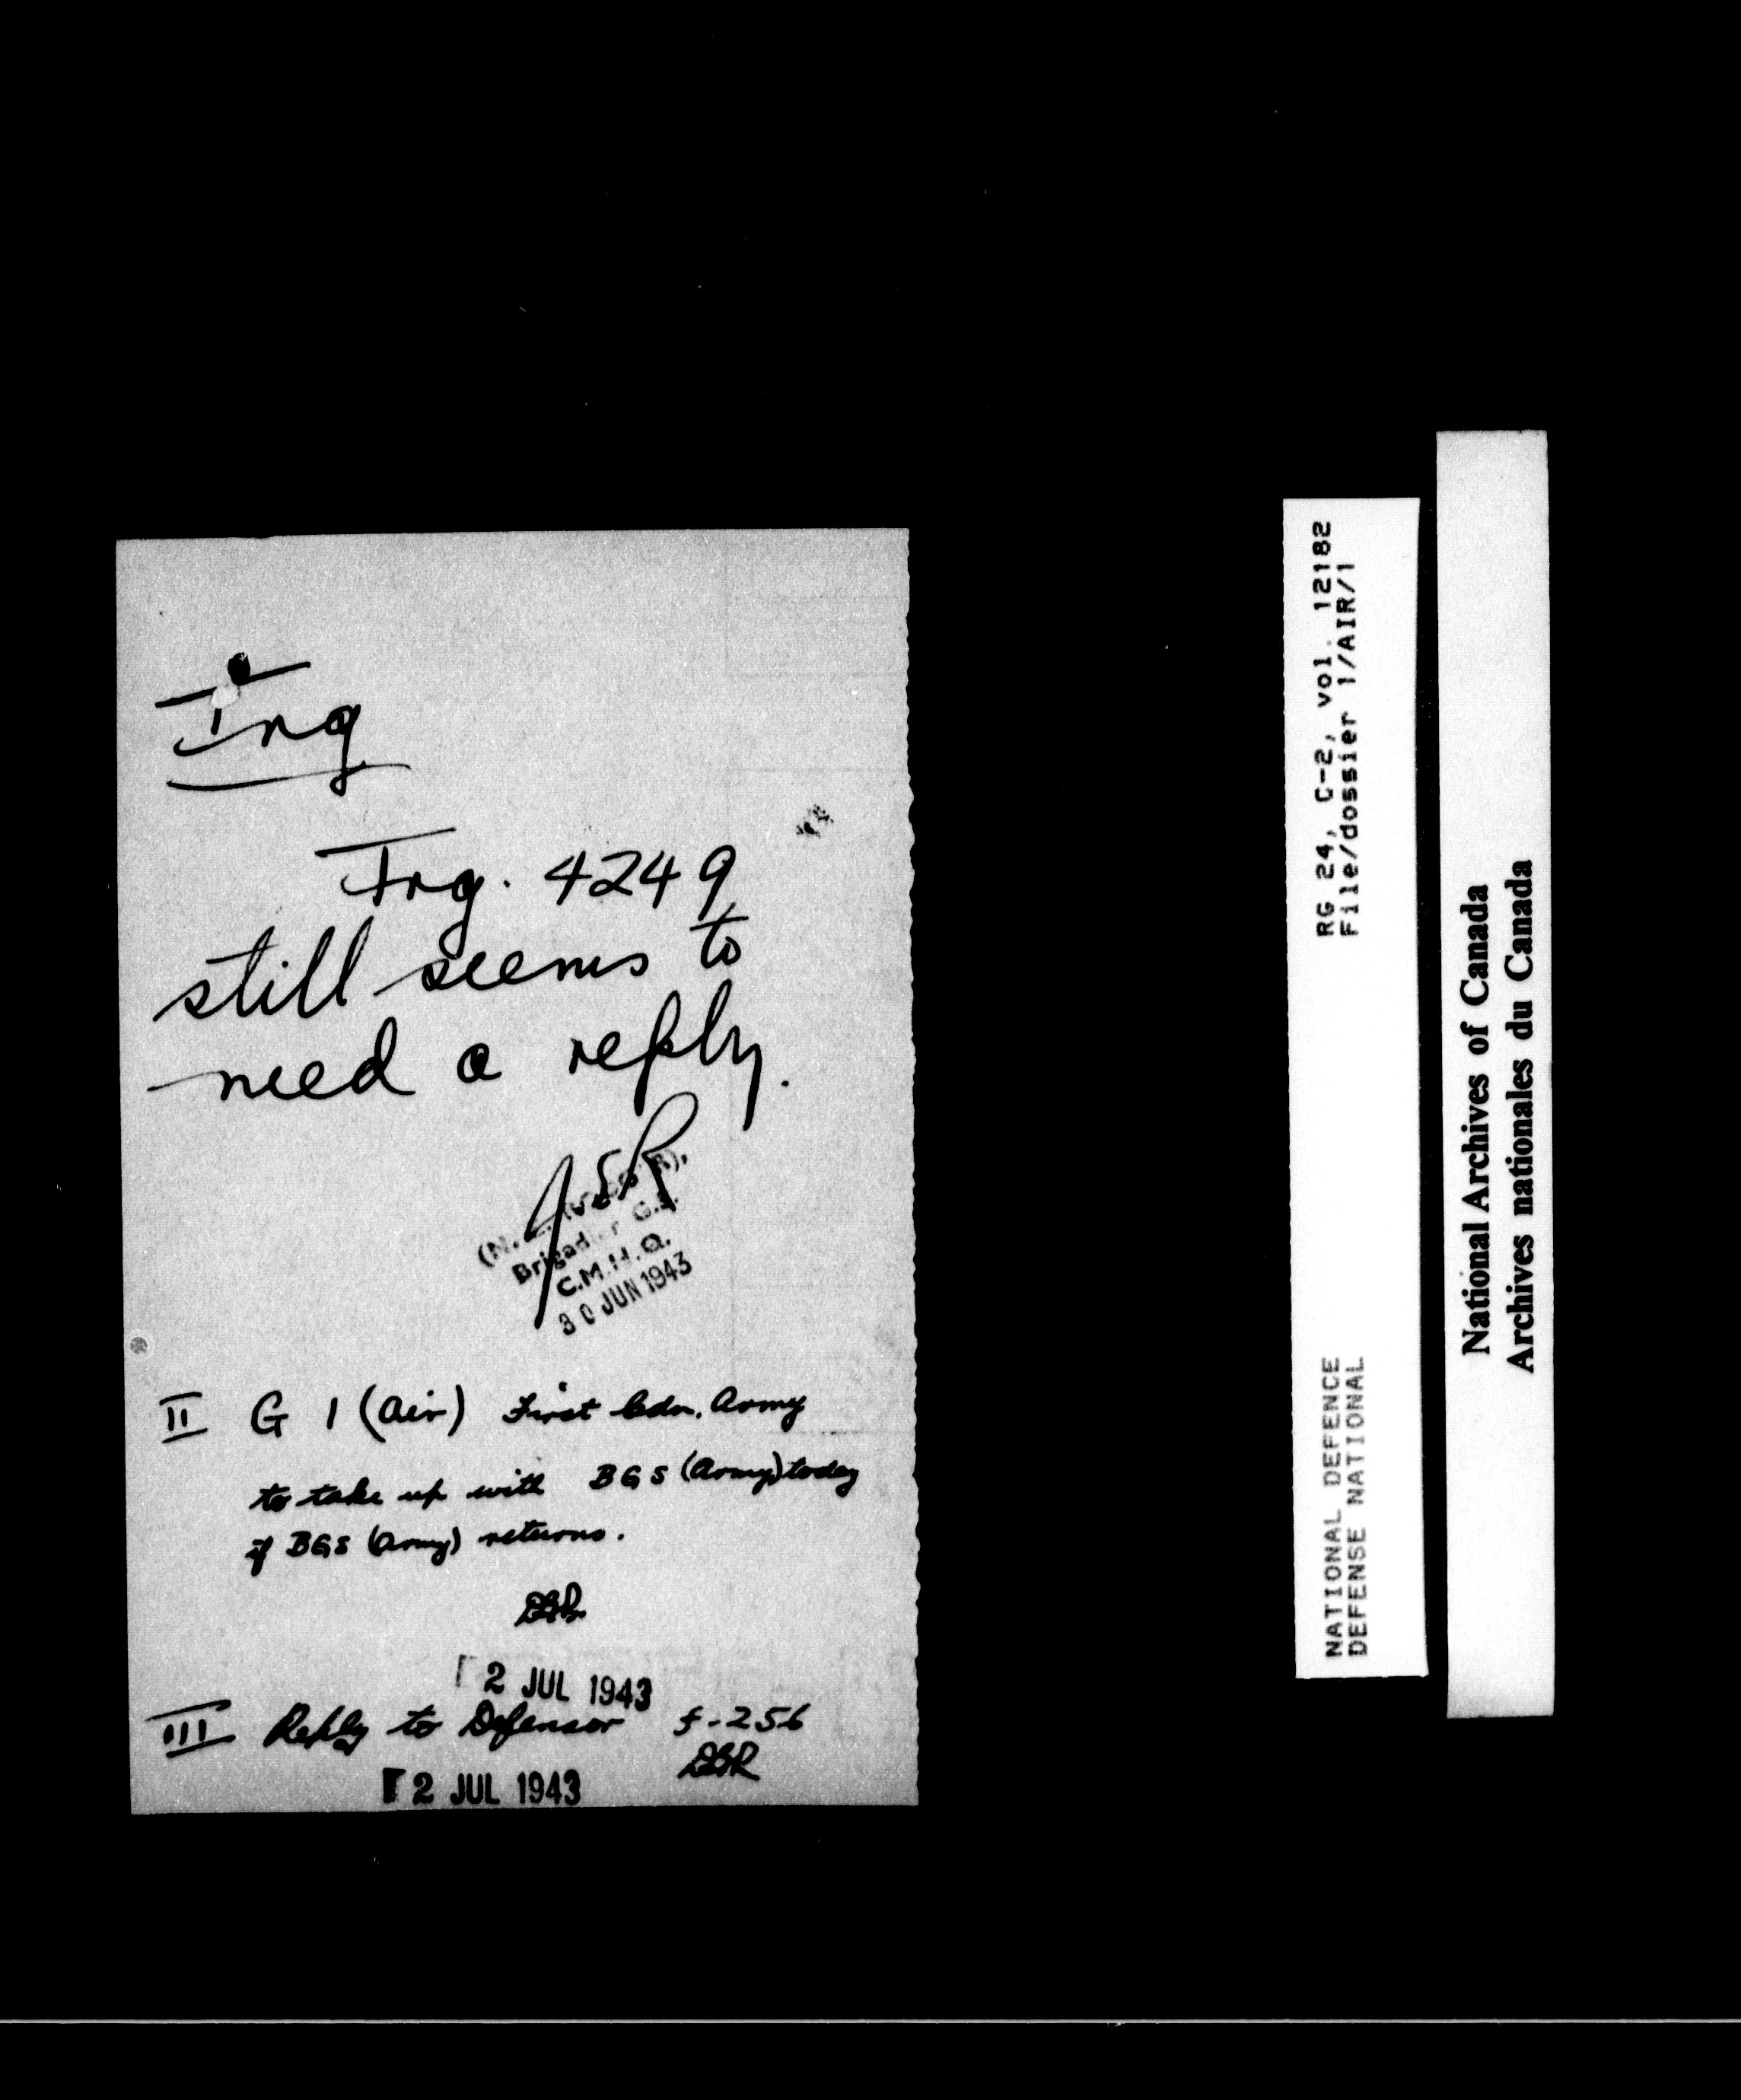 Trg
Trg. 4249
still seems to
need a reply.
Brigadier G.S.
C.M.H.Q.
30 JUN 1943
II G 1 (Air) First Cdn. Army
to take up with BGS (Army) today
if BGS (Army) returns.
2 JUL 1943
III Reply to Defensor f-256
DGR
2 JUL 1943
RG 24, C-2, vol. 12182
File/dossier 1/AIR/1
NATIONAL DEFENCE
DEFENSE NATIONAL
National Archives of Canada
Archives nationales du Canada